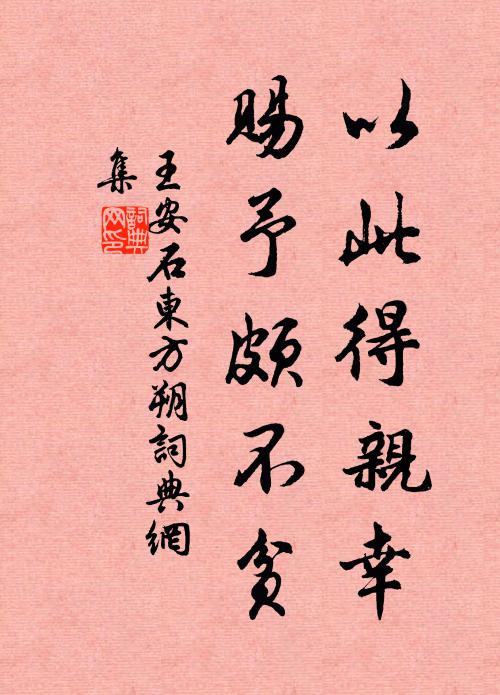 以此得親幸
賜予頗不貧
王安石東方朔詞典網
集
詞典網印